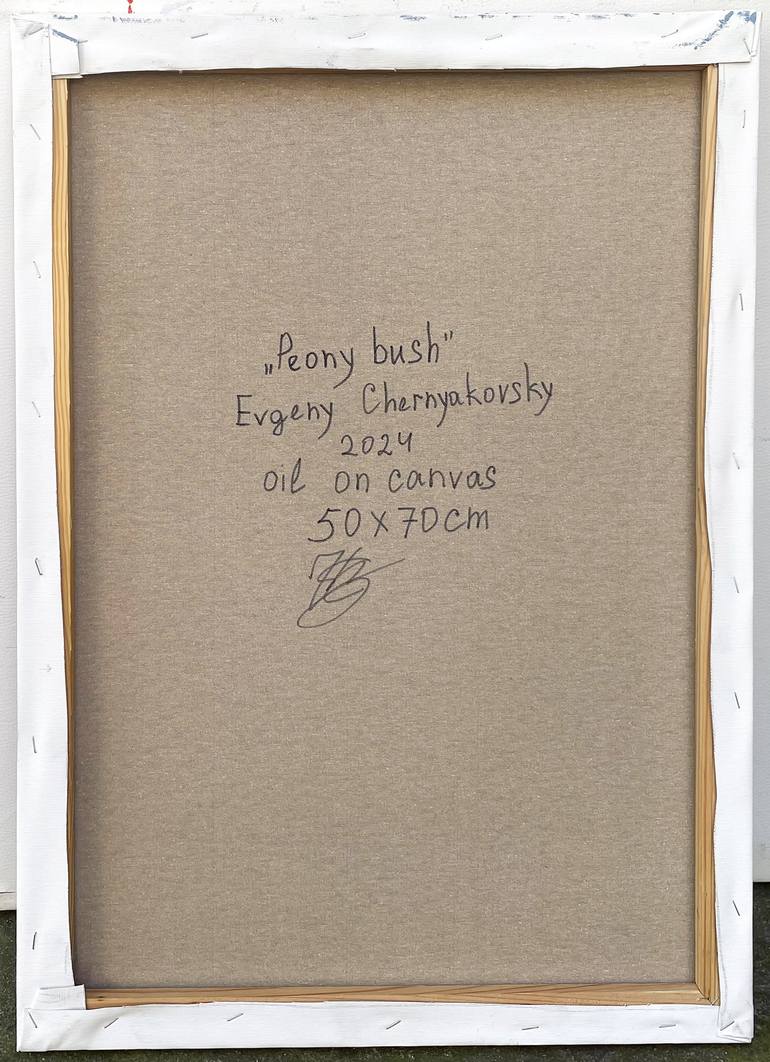 „Peony bush"
Evgeny Chernyakovsky
2024
oil on canvas
50x70cm